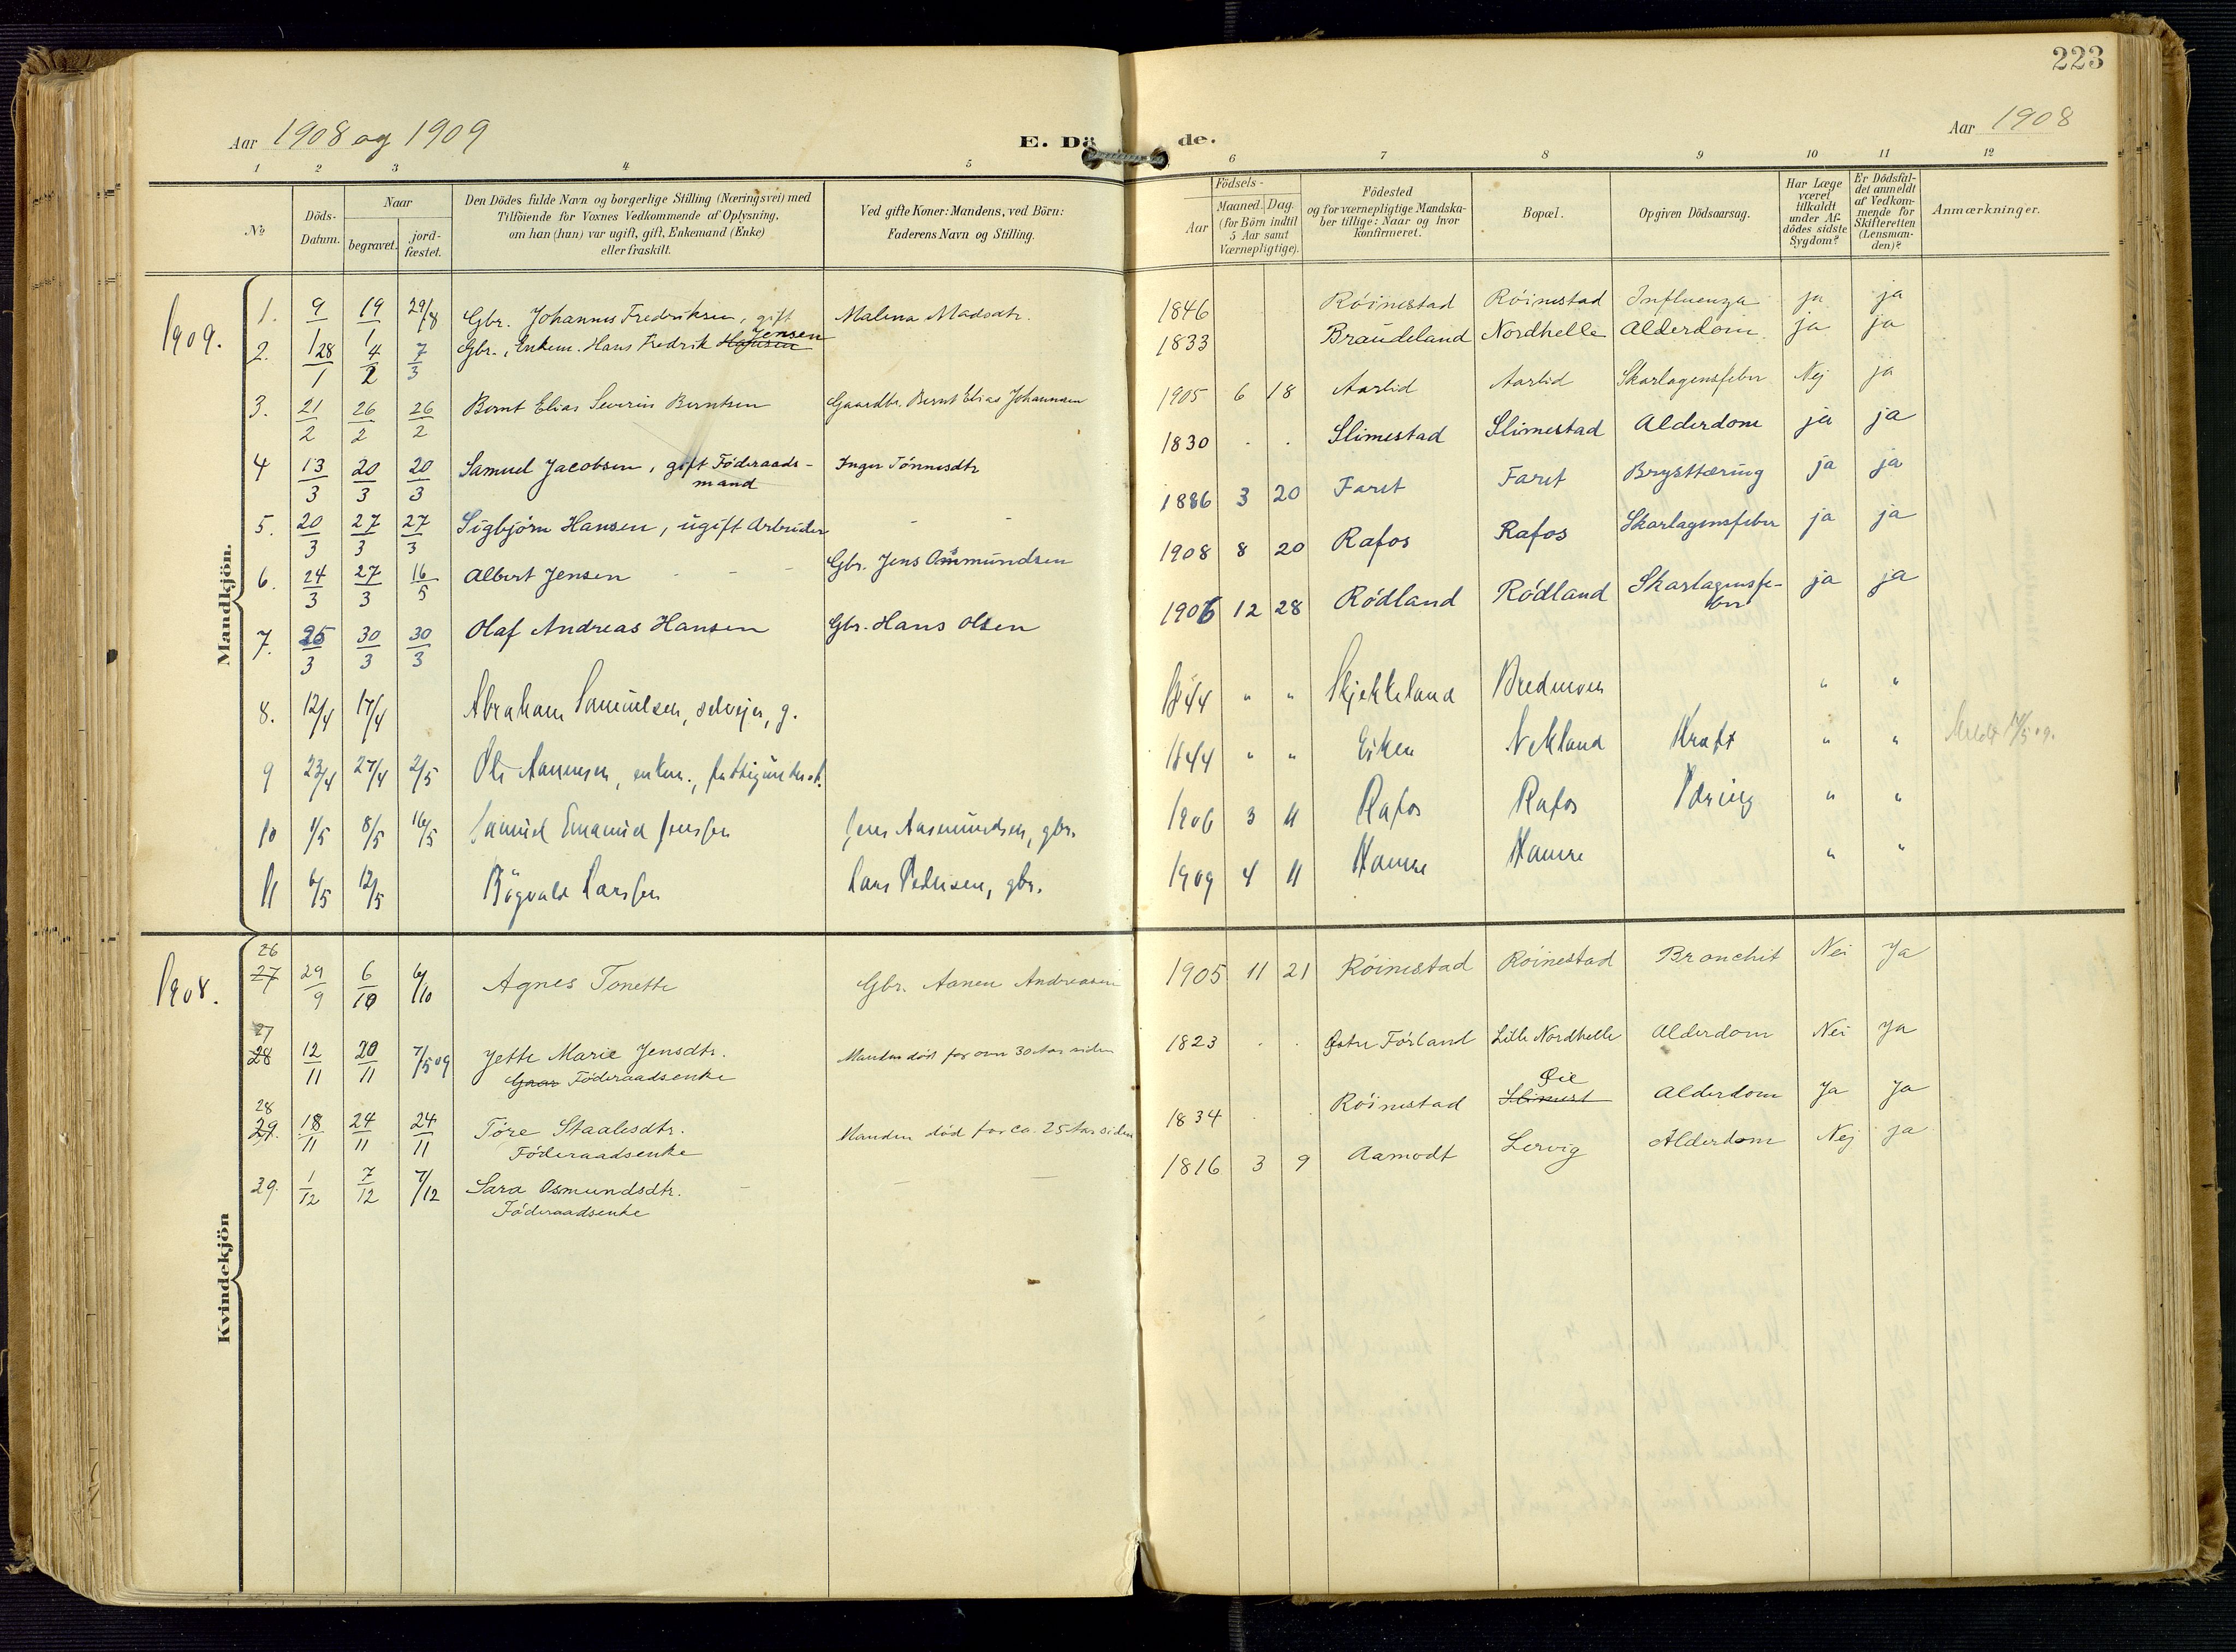 223
Aar 1908 og 1909
E. Dä
de.
Aar 1908
1 2 3 4 5 6 7 8 9 10 11 12
No
Döds-Datum.
Naar
begravet.
jord-fæstet.
Den Dödes fulde Navn og borgerlige Stilling (Næringsvei) med
Tilföiende for Voxnes Vedkommende af Oplysning,
om han (hun) var ugift, gift, Enkemand (Enke)
eller fraskilt.
Ved gifte Koner: Mandens, ved Börn:
Faderens Navn og Stilling.
Födsels-
Aar
Maaned. Dag.
(for Börn indtil
5 Aar samt
Værnepligtige).
Födested
og for værnepligtige Mandska-
ber tillige: Naar og hvor
konfirmeret.
Bopæl.
Opgiven Dödsaarsag.
Har Læge
været
tilkaldt
under Af-
dödes sidste
Sygdom?
Er Dödsfal-
det anmeldt
af Vedkom-
mende for
Skifteretten
(Lensman-
den)?
Anmærkninger.
Mandkjön.
1909.
1. 9/1 19/1 29/8 Gbr. Johannes Fredriksen, gift Malena Madsdtr. 1846 Röinestad Röinestad Influenza ja ja
2. 28/1 4/2 7/3 Gbr., Enkem. Hans Fredrik Hansen Jensen 1833 Braudeland Nordhelle Alderdom ja ja
3. 21/2 26/2 26/2 Bernt Elias Severin Berntsen Gaardbr. Bernt Elias Johannsen 1905 6 18 Aarlid Aarlid Skarlagensfeber Nej ja
4 13/3 20/3 20/3 Samuel Jacobsen, gift Föderaads-
mand Inger Tönnesdtr 1830 . . Slimestad Slimestad Alderdom ja ja
5. 20/3 27/3 27/3 Sigbjörn Hansen, ugift Arbeider - - 1886 3 20 Faret Faret Brysttæring ja ja
6. 24/3 27/3 16/5 Albert Jensen - - - Gbr. Jens Asmundsen 1908 8 20 Rafos Rafos Skarlagensfeber ja ja
7. 25/3 30/3 30/3 Olaf Andreas Hansen Gbr. Hans Olsen 1906 12 28 Rödland Rödland Skarlagensfe-
ber ja ja
8. 12/4 17/4 Abraham Samuelsen, selvejer, g. 1844 " " Skjekkeland Bredmoen " "
9 23/4 27/4 2/5 Ole Aanensen, enkem., fattigunderst. 1844 " " Eiken Nekland Kræft " " Meldt 14/5 09.
10 1/5 8/5 16/5 Samuel Emanuel Jensen Jens Aasmundsen, gbr. 1906 3 11 Rafos Rafos Tæring " "
11 6/5 12/5 Rögvald Larsen Lars Pedersen, gbr. 1909 4 11 Hamre Hamre " "
Kvindekjön
1908.
26
27 29/9 6/10 6/10 Agnes Tonette Gbr. Aanen Andreasen 1905 11 21 Röinestad Röinestad Bronchit Nei Ja
27
28 12/11 20/11 7/5 09 Jette Marie Jensdtr.
Gaar Föderaadsenke Manden död for over 30 Aar siden 1823 . . Østre Förland Lille Nordhelle Alderdom Nei Ja
28
29. 18/11 24/11 24/11 Töre Staalesdtr.
Föderaadsenke Manden död for ca. 25 Aar siden 1834 . . Röinestad Slimest Øie Alderdom Ja Ja
29. 1/12 7/12 7/12 Sara Osmundsdtr.
Föderaadsenke - - 1816 3 9 Aamodt Lervig Alderdom Nej ja